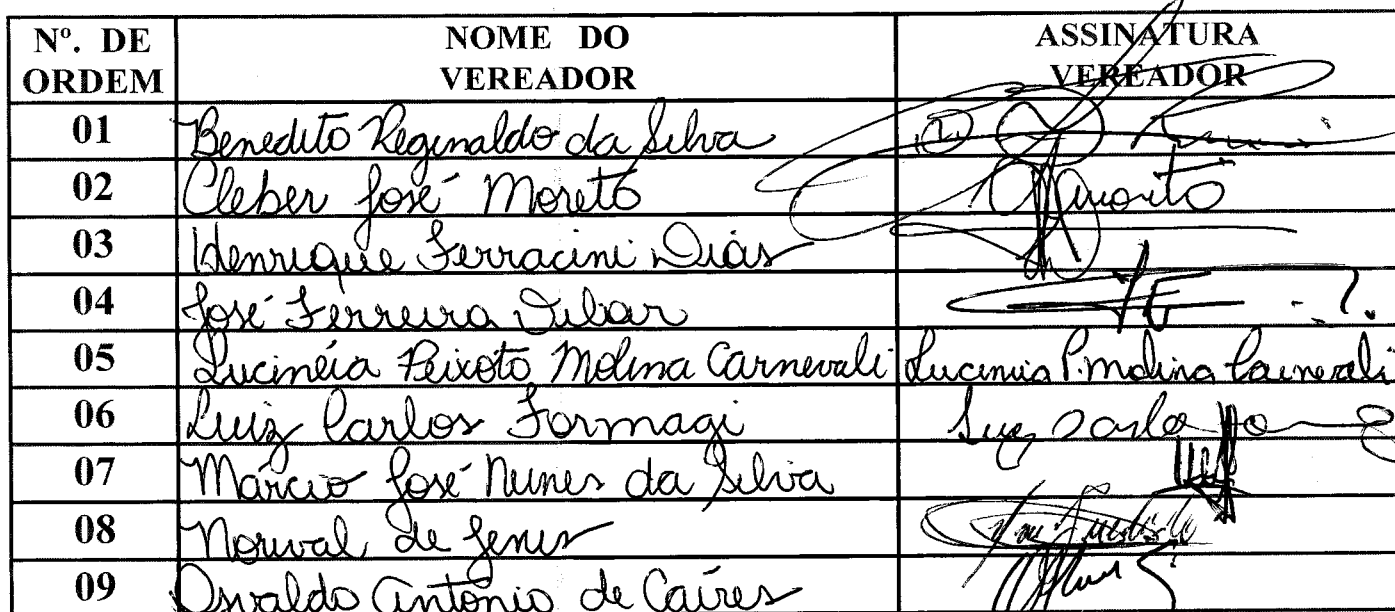 Nº. DE ORDEM NOME DO VEREADOR ASSINATURA VEREADOR
01 Benedito Reginaldo da Silva
02 Cleber José Moreto
03 Henrique Ferracini Dias
04 José Ferreira
05 Lucinéia Peixoto Molina Carnevali Lucineia P. Molina Carnevali
06 Luiz Carlos Formagi Luiz Carlos
07 Márcio José Nunes da Silva
08 Norival de Jesus
09 Osvaldo Antônio de Caires